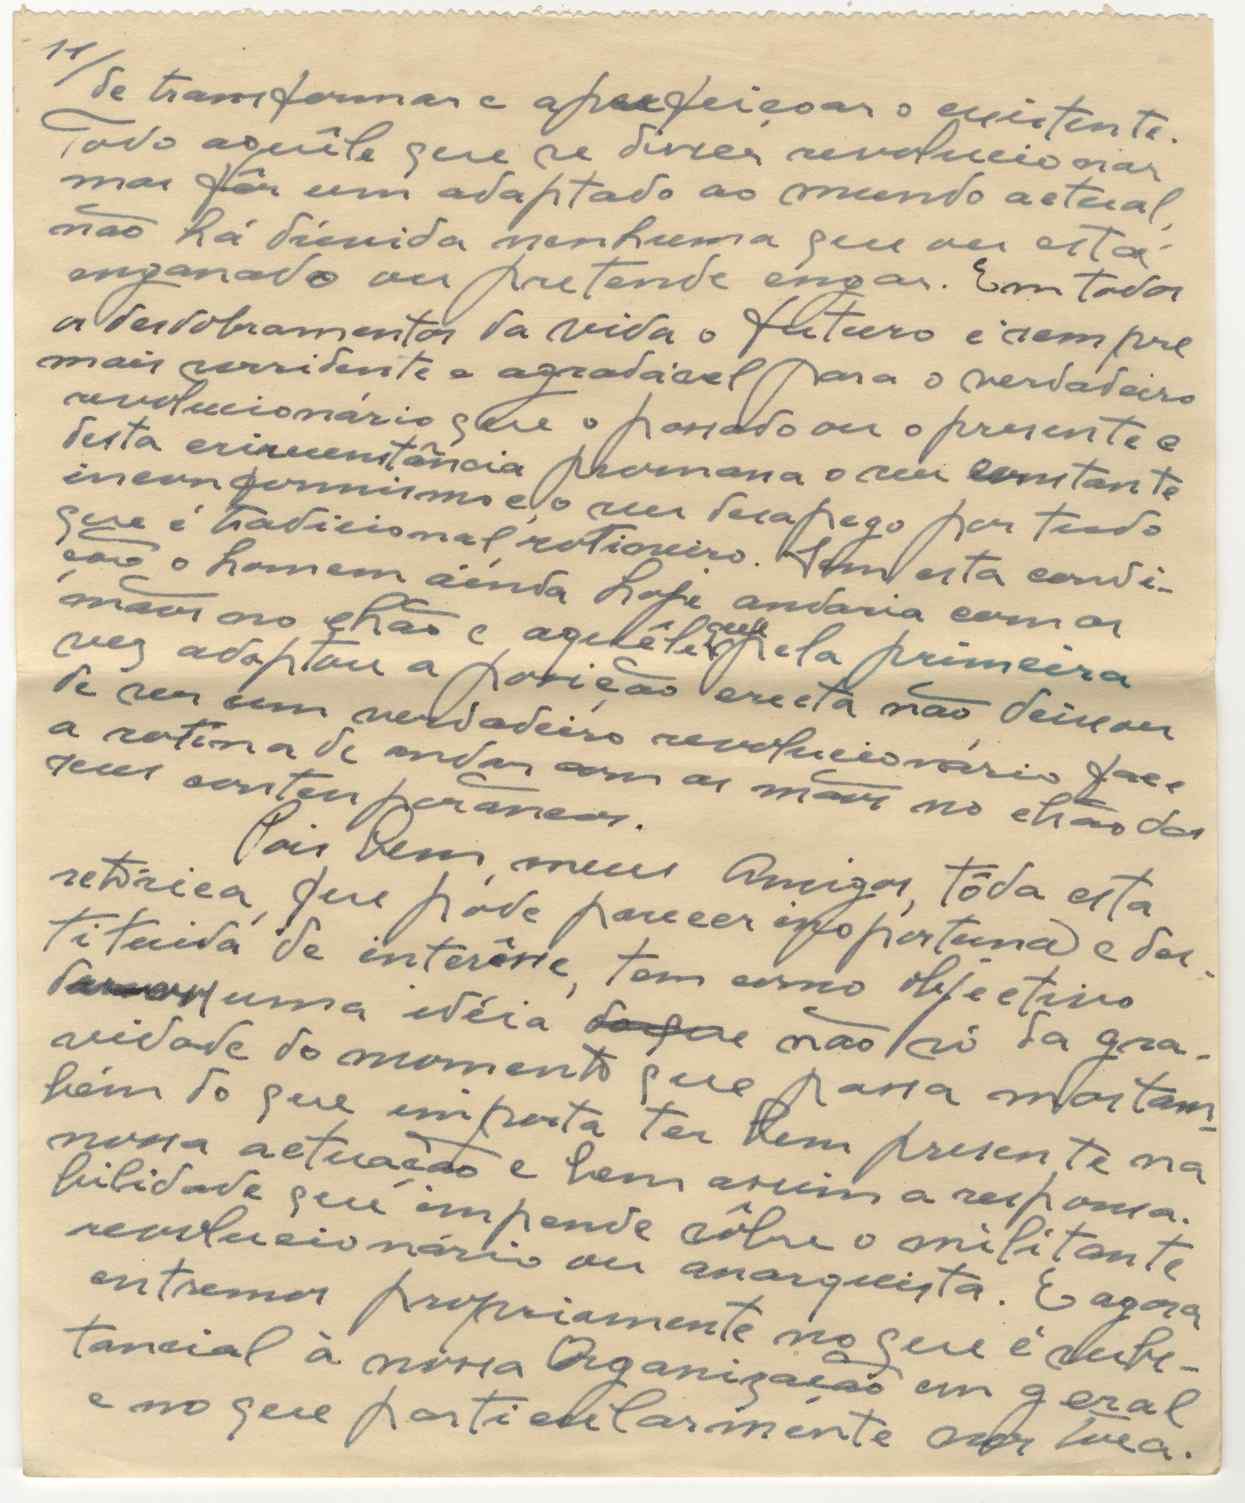 11/
de transformar e aperfeiçoar o existente.
Todo aquêle que se disser revolucionar
mas fôr um adaptado ao mundo actual,
não há dúvida nenhuma que ou está
enganado ou pretende engar. Em todos
os desdobramentos da vida o futuro é sempre
mais sorridente e agradável para o verdadeiro
revolucionário que o passado ou o presente e
desta circunstância promana o seu constante
inconformismo e o seu desapego por tudo
que é tradicional, rotineiro. Sem esta condi-
ção o homem ainda hoje andaria com as
mãos no chão e aquêle que pela primeira
vez adoptou a posição erecta não deixou
de ser um verdadeiro revolucionário face
a rotina de andar com as mãos no chão dos
seus contemporâneos.
Pois bem, meus Amigos, tôda esta
retórica, que póde parecer inoportuna e des-
tituida de interêsse, tem como objectivo
dar uma idéia não só da gra-
vidade do momento que passa mas tam-
bém do que importa ter bem presente na
nossa actuação e bem assim a responsa-
bilidade que impende sôbre o militante
revolucionário ou anarquista. E agora
entremos propriamente no que é subs-
tancial à nossa Organização em geral
e no que particularmente nos tóca.